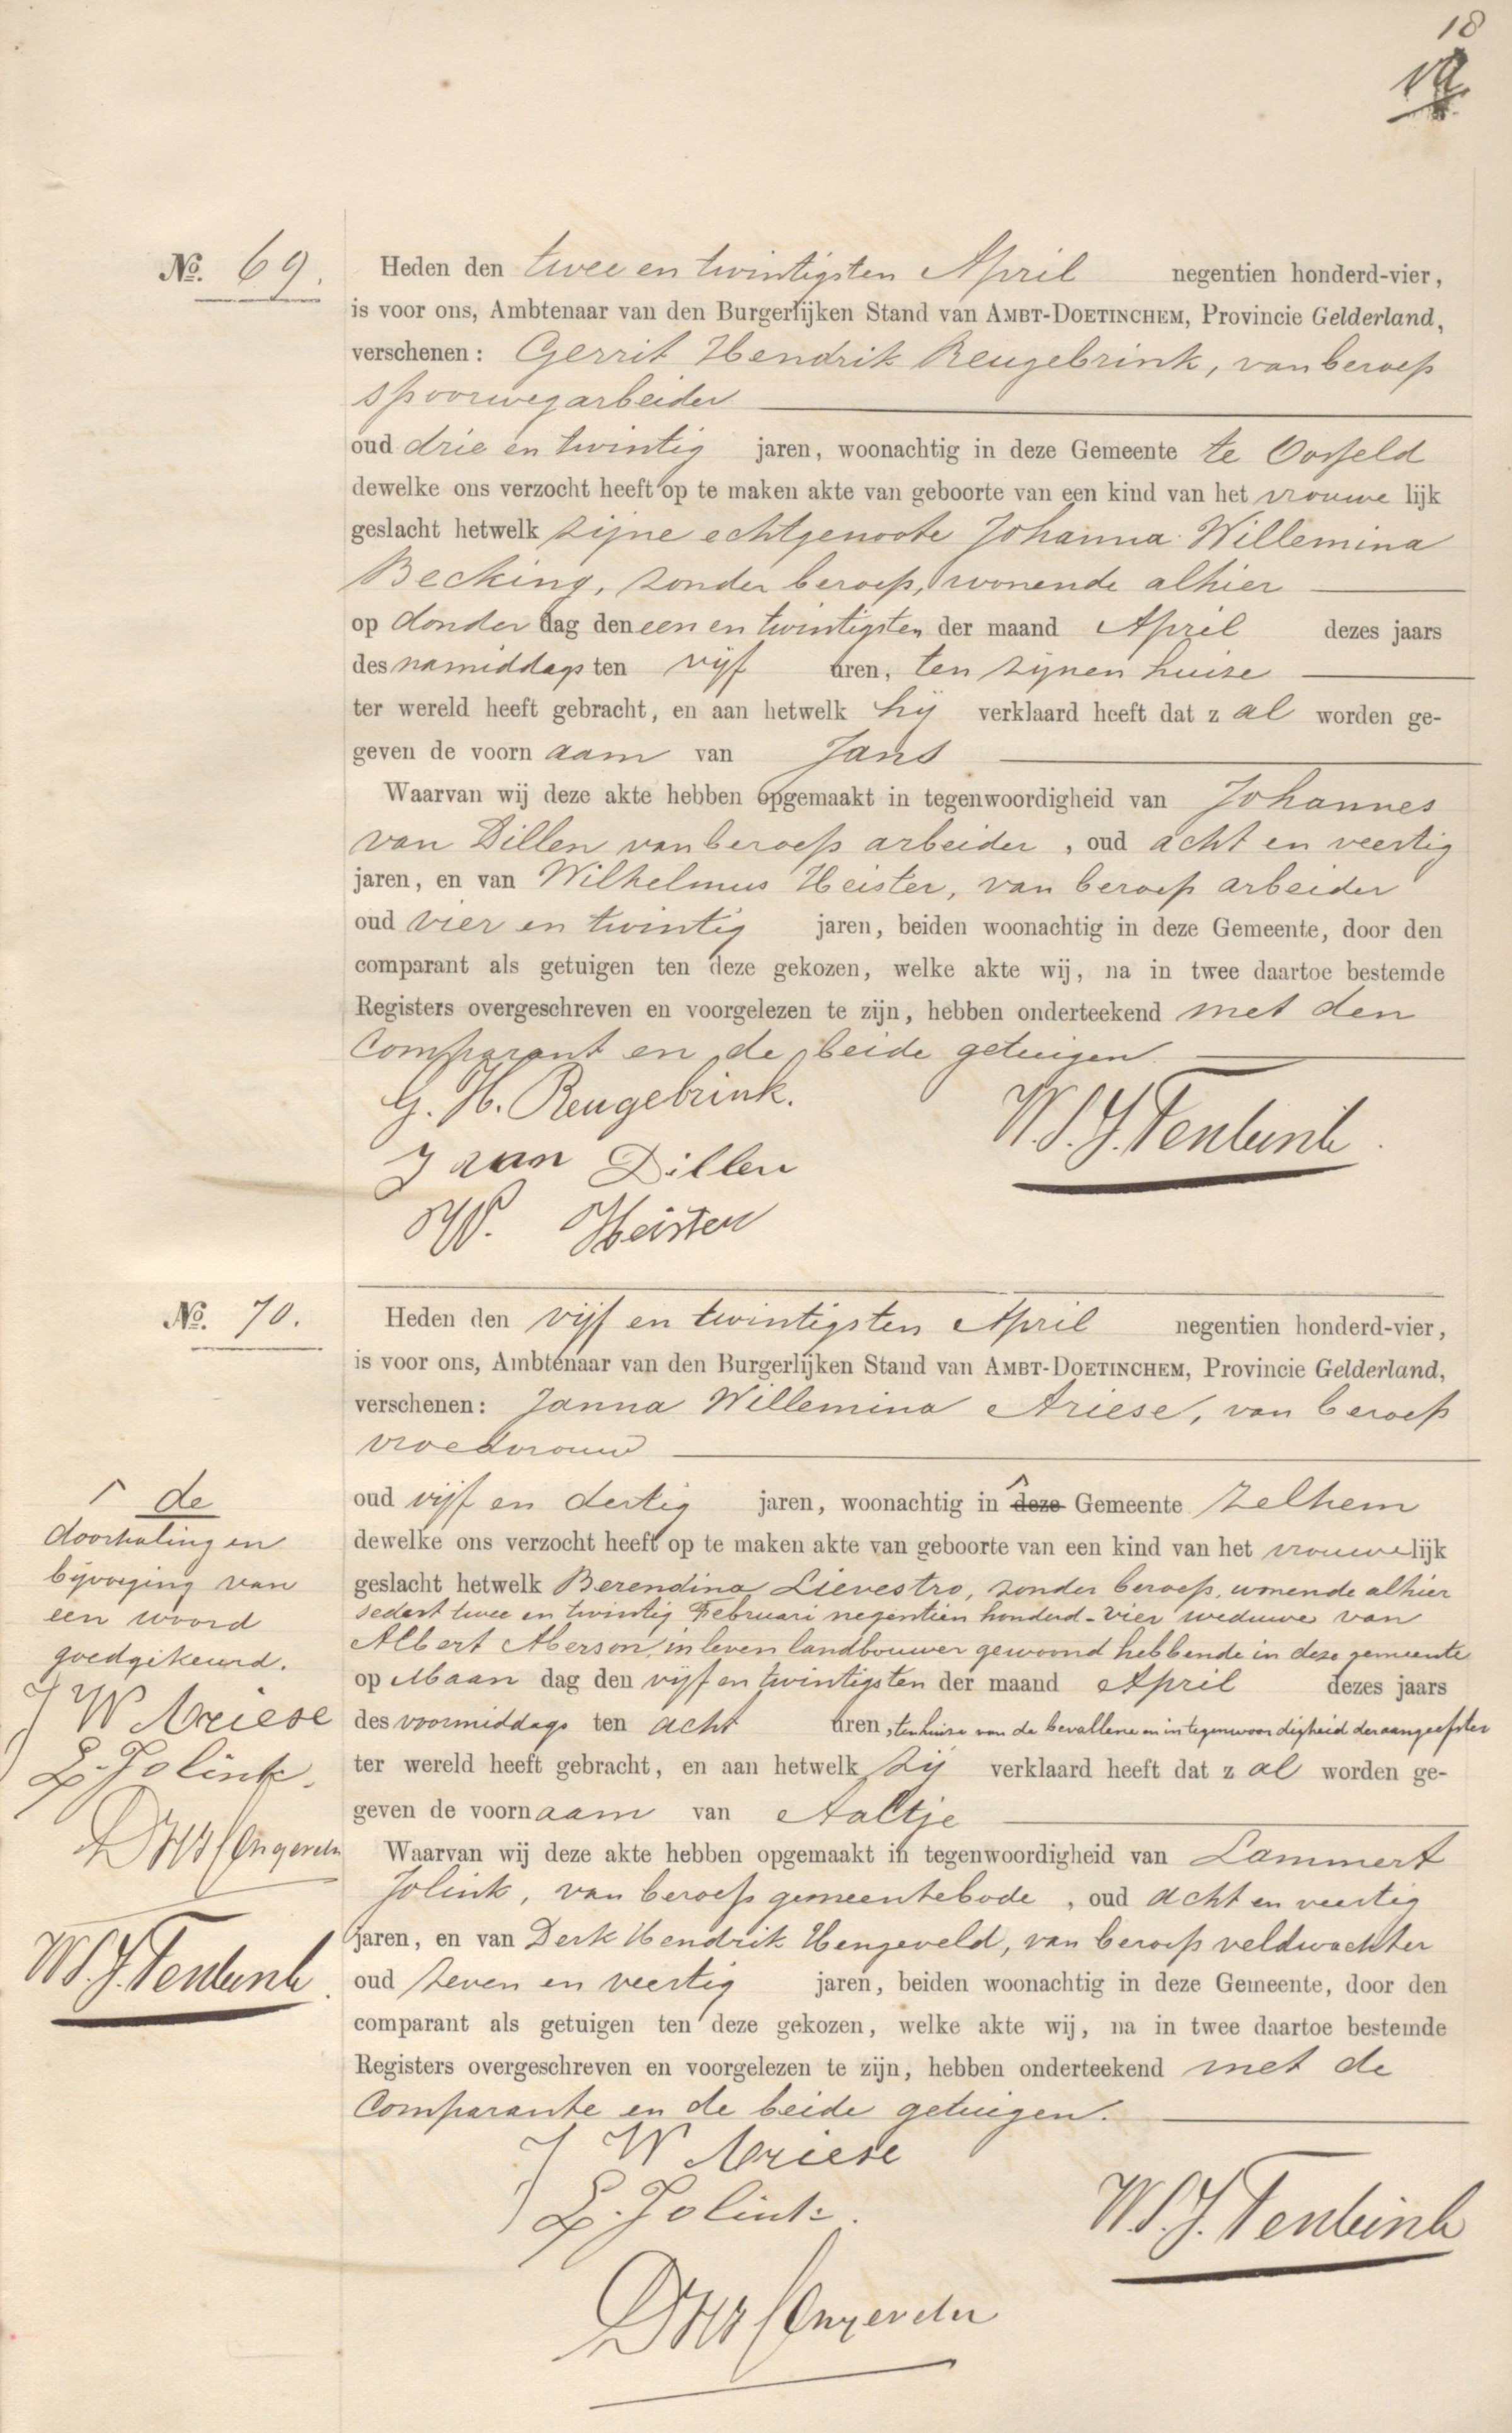 18
No. 69.
Heden den twee en twintigsten April negentien honderd-vier,
is voor ons, Ambtenaar van den Burgerlijken Stand van AMBT-DOETINCHEM, Provincie Gelderland,
verschenen: Gerrit Hendrik Reugebrink, van beroep
spoorwegarbeider
oud drie en twintig jaren, woonachtig in deze Gemeente te Oosseld
dewelke ons verzocht heeft op te maken akte van geboorte van een kind van het vrouwe lijk
geslacht hetwelk zijne echtgenoote Johanna Willemina
Becking, zonder beroep, wonende alhier
op donder dag den een en twintigsten der maand April dezes jaars
des namiddags ten vijf uren, ten zijnen huize
ter wereld heeft gebracht, en aan hetwelk hij verklaard heeft dat z al worden ge-
geven de voorn aam van Jans
Waarvan wij deze akte hebben opgemaakt in tegenwoordigheid van Johannes
van Dillen van beroep arbeider, oud acht en veertig
jaren, en van Wilhelmus Heister, van beroep arbeider
oud vier en twintig jaren, beiden woonachtig in deze Gemeente, door den
comparant als getuigen ten deze gekozen, welke akte wij, na in twee daartoe bestemde
Registers overgeschreven en voorgelezen te zijn, hebben onderteekend met den
Comparant en de beide getuigen.
G. H. Reugebrink.
J van Dillen
W. Heister
No. 70.
Heden den vijf en twintigsten April negentien honderd-vier,
is voor ons, Ambtenaar van den Burgerlijken Stand van AMBT-DOETINCHEM, Provincie Gelderland,
verschenen: Janna Willemina Ariese, van beroep
vroedvrouw
oud vijf en dertig jaren, woonachtig in deze Gemeente Zelhem
dewelke ons verzocht heeft op te maken akte van geboorte van een kind van het vrouwelijk
geslacht hetwelk Berendina Lievestro, zonder beroep, wonende alhier
sedert twee en twintig Februari negentien honderd-vier weduwe van
Albert Aberson, in leven landbouwer gewoond hebbende in deze gemeente
op Maan dag den vijf en twintigsten der maand April dezes jaars
des voormiddags ten acht uren, ten huize van de bevallene en in tegenwoordigheid der aangeefster
ter wereld heeft gebracht, en aan hetwelk zij verklaard heeft dat z al worden ge-
geven de voornaam van Aaltje
Waarvan wij deze akte hebben opgemaakt in tegenwoordigheid van Lammert
Jolink, van beroep gemeentebode, oud acht en veertig
jaren, en van Derk Hendrik Hengeveld, van beroep veldwachter
oud zeven en veertig jaren, beiden woonachtig in deze Gemeente, door den
comparant als getuigen ten deze gekozen, welke akte wij, na in twee daartoe bestemde
Registers overgeschreven en voorgelezen te zijn, hebben onderteekend met de
Comparante en de beide getuigen.
J W Ariese
L. Jolink.
de
doorhaling en
bijvoeging van
een woord
goedgekeurd.
J W Ariese
L. Jolink.